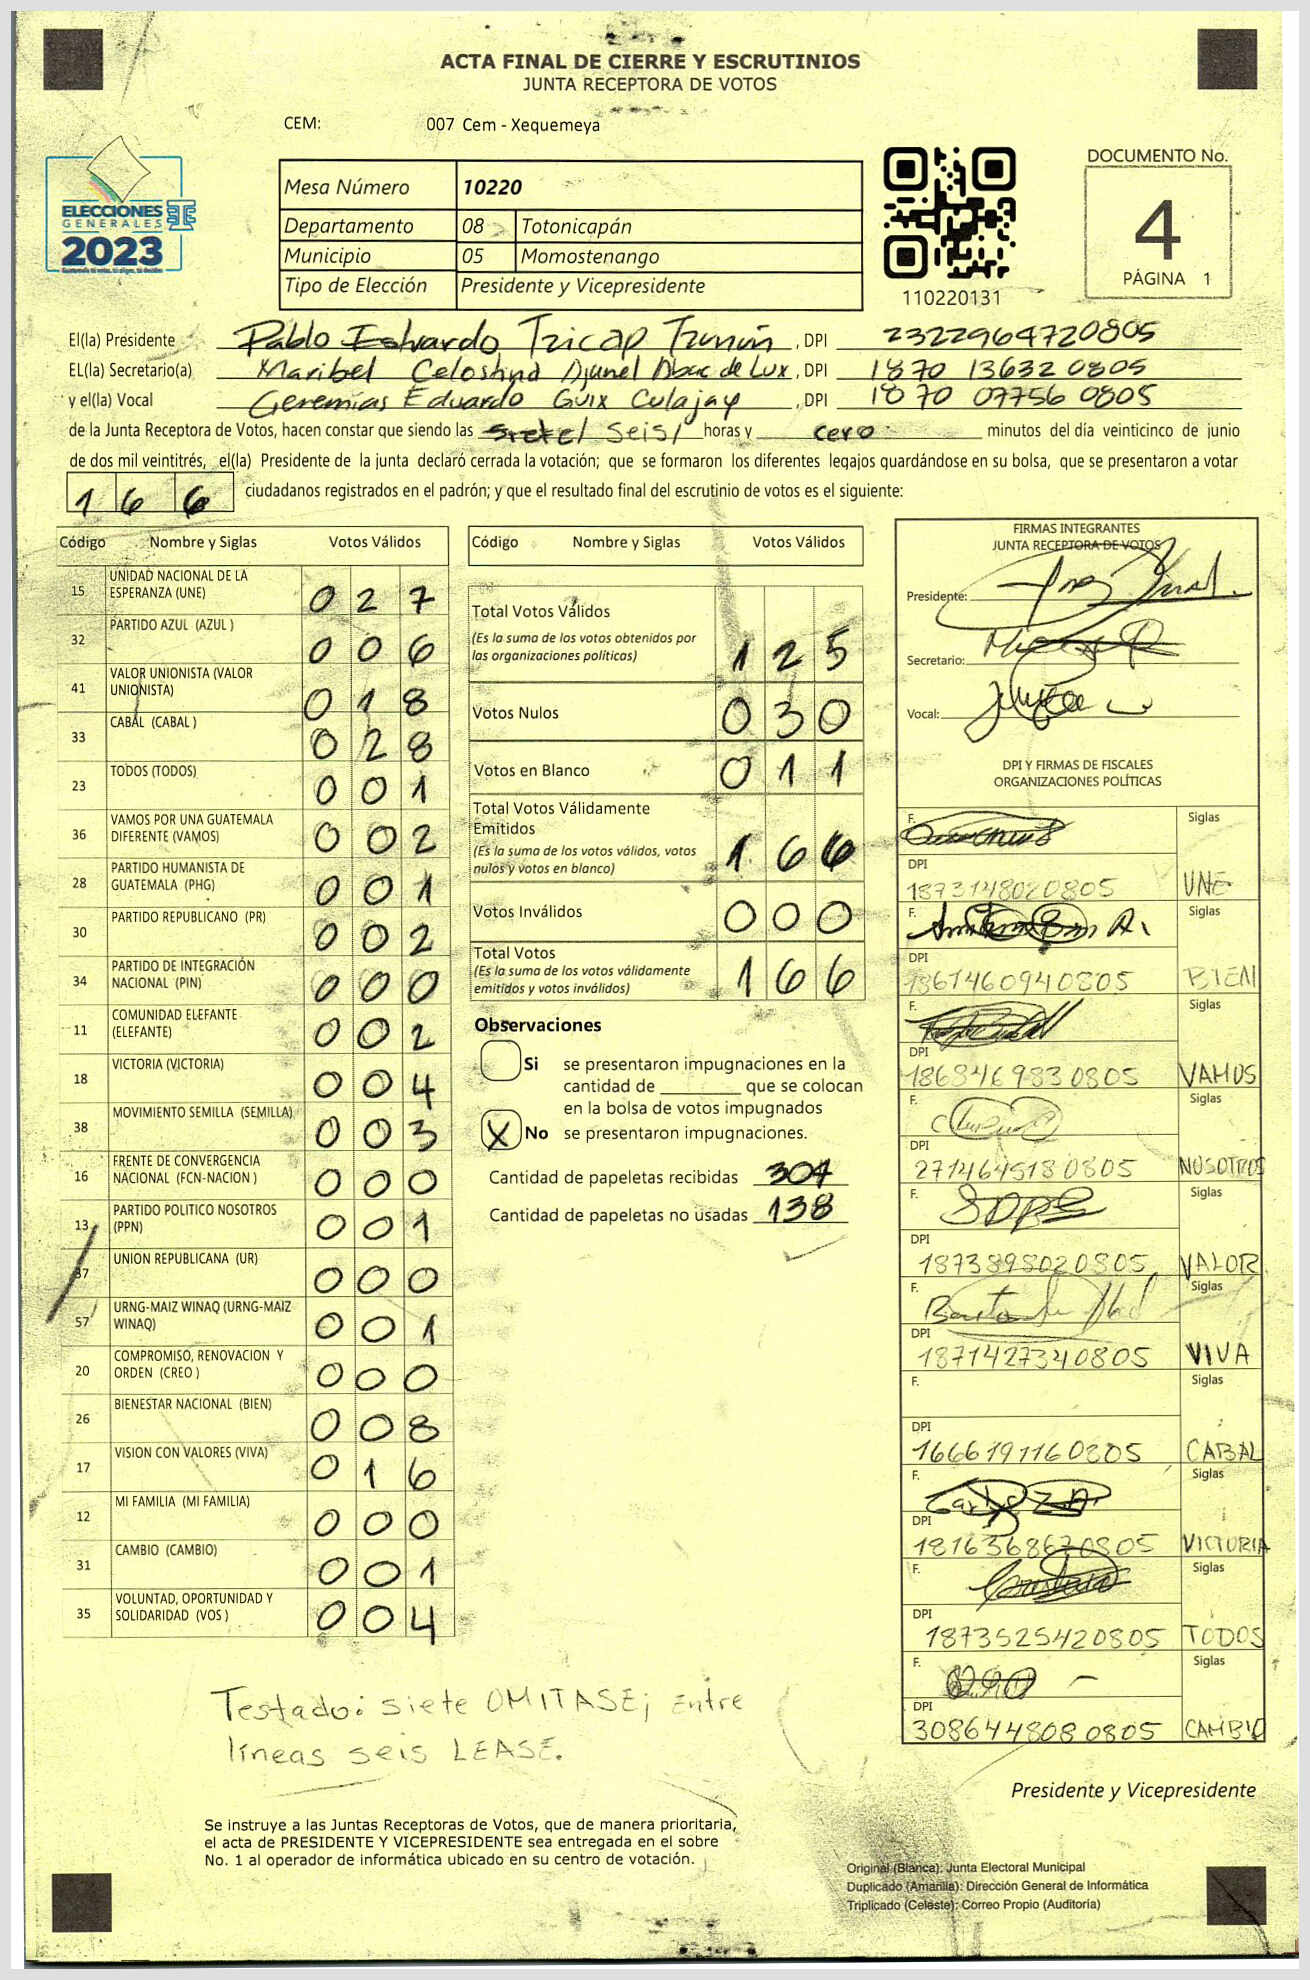 ACTA FINAL DE CIERRE Y ESCRUTINIOS
JUNTA RECEPTORA DE VOTOS
CEM: 007 Cem - Xequemeya
ELECCIONES
GENERALES
2023
Mesa Número 10220
Departamento 08 Totonicapán
Municipio 05 Momostenango
Tipo de Elección Presidente y Vicepresidente
110220131
DOCUMENTO No.
4
PÁGINA 1
El(la) Presidente Pablo Estuardo Tzicap , DPI 2322964720805
EL(la) Secretario(a) Maribel de Lux , DPI 1870 13632 0805
y el(la) Vocal Geremias Eduardo Guix Culajay , DPI 1870 07756 0805
de la Junta Receptora de Votos, hacen constar que siendo las siete/ Seis/ horas y cero minutos del día veinticinco de junio
de dos mil veintitrés, el(la) Presidente de la junta declaró cerrada la votación; que se formaron los diferentes legajos guardándose en su bolsa, que se presentaron a votar
1 6 6 ciudadanos registrados en el padrón; y que el resultado final del escrutinio de votos es el siguiente:
Código Nombre y Siglas Votos Válidos
15 UNIDAD NACIONAL DE LA ESPERANZA (UNE) 0 2 7
32 PARTIDO AZUL (AZUL ) 0 0 6
41 VALOR UNIONISTA (VALOR UNIONISTA) 0 1 8
33 CABAL (CABAL ) 0 2 8
23 TODOS (TODOS) 0 0 1
36 VAMOS POR UNA GUATEMALA DIFERENTE (VAMOS) 0 0 2
28 PARTIDO HUMANISTA DE GUATEMALA (PHG) 0 0 1
30 PARTIDO REPUBLICANO (PR) 0 0 2
34 PARTIDO DE INTEGRACIÓN NACIONAL (PIN) 0 0 0
11 COMUNIDAD ELEFANTE (ELEFANTE) 0 0 2
18 VICTORIA (VICTORIA) 0 0 4
38 MOVIMIENTO SEMILLA (SEMILLA) 0 0 3
16 FRENTE DE CONVERGENCIA NACIONAL (FCN-NACION ) 0 0 0
13 PARTIDO POLITICO NOSOTROS (PPN) 0 0 1
37 UNION REPUBLICANA (UR) 0 0 0
57 URNG-MAIZ WINAQ (URNG-MAIZ WINAQ) 0 0 1
20 COMPROMISO, RENOVACION Y ORDEN (CREO ) 0 0 0
26 BIENESTAR NACIONAL (BIEN) 0 0 8
17 VISION CON VALORES (VIVA) 0 1 6
12 MI FAMILIA (MI FAMILIA) 0 0 0
31 CAMBIO (CAMBIO) 0 0 1
35 VOLUNTAD, OPORTUNIDAD Y SOLIDARIDAD (VOS ) 0 0 4
Código Nombre y Siglas Votos Válidos
Total Votos Válidos 1 2 5
(Es la suma de los votos obtenidos por
las organizaciones políticas)
Votos Nulos 0 3 0
Votos en Blanco 0 1 1
Total Votos Válidamente
Emitidos 1 6 6
(Es la suma de los votos válidos, votos
nulos y votos en blanco)
Votos Inválidos 0 0 0
Total Votos 1 6 6
(Es la suma de los votos válidamente
emitidos y votos inválidos)
Observaciones
Si se presentaron impugnaciones en la
cantidad de ________ que se colocan
en la bolsa de votos impugnados
X No se presentaron impugnaciones.
Cantidad de papeletas recibidas 304
Cantidad de papeletas no usadas 138
FIRMAS INTEGRANTES
JUNTA RECEPTORA DE VOTOS
Presidente:
Secretario:
Vocal:
DPI Y FIRMAS DE FISCALES
ORGANIZACIONES POLÍTICAS
F. Siglas
DPI
1873148020805 UNE
F. Siglas
DPI
1861460940805 BIEN
F. Siglas
DPI
1868469830805 VAMOS
F. Siglas
DPI
2714645180805 NOSOTROS
F. Siglas
DPI
1873898020805 VALOR
F. Siglas
DPI
1871427340805 VIVA
F. Siglas
DPI
1666191160805 CABAL
F. Siglas
DPI
1816368670805 VICTORIA
F. Siglas
DPI
1873525420805 TODOS
F. Siglas
DPI
3086448080805 CAMBIO
Testado: siete OMITASE; Entre
líneas seis LEASE.
Presidente y Vicepresidente
Se instruye a las Juntas Receptoras de Votos, que de manera prioritaria,
el acta de PRESIDENTE Y VICEPRESIDENTE sea entregada en el sobre
No. 1 al operador de informática ubicado en su centro de votación.
Original (Blanca): Junta Electoral Municipal
Duplicado (Amarilla): Dirección General de Informática
Triplicado (Celeste): Correo Propio (Auditoría)